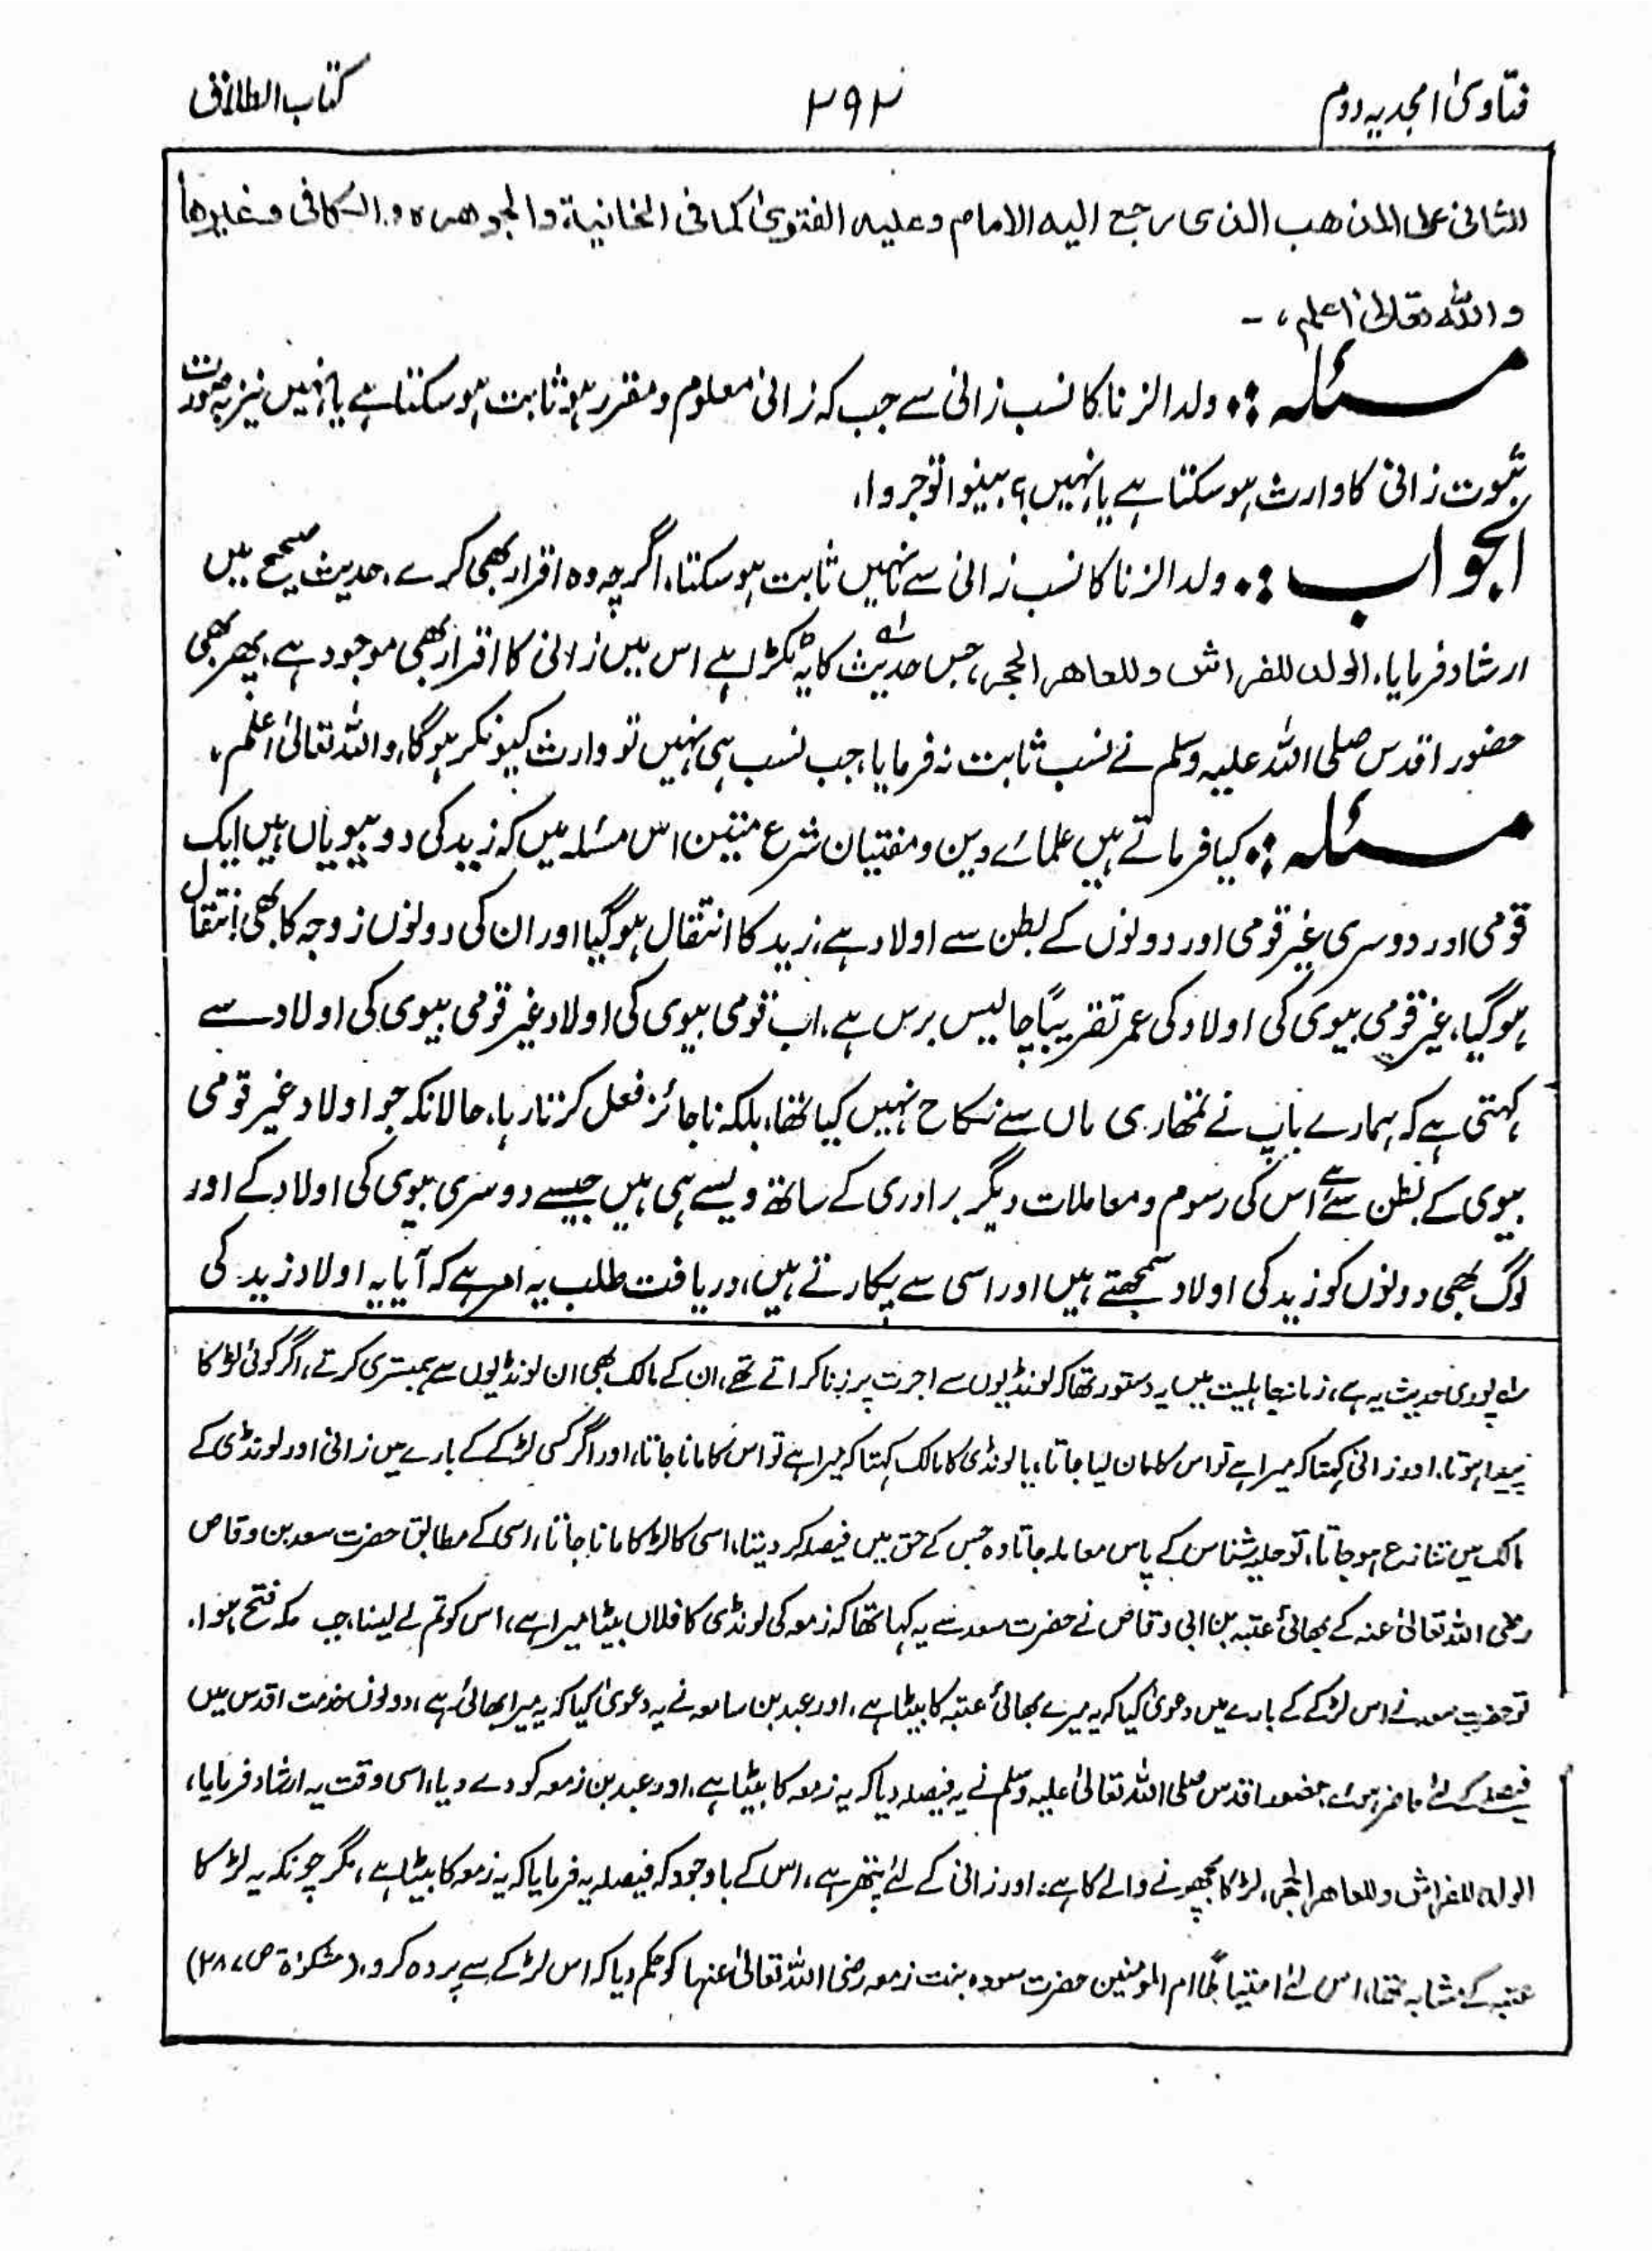 فتاویٰ امجدیہ دوم
۲۹۲
کتاب الطلاق
الثانی علی المذھب الذی رجع الیہ الامام وعلیہ الفتویٰ کما فی الخانیۃ والجوھرہ و الکافی وغیرھا
واللہ تعالیٰ اعلم ، ۔
مسئلہ :۔ ولد الزنا کا نسب زانی سے جب کہ زانی معلوم و مقرر ہو ثابت ہو سکتا ہے یا نہیں نیز بہ صورت
ثبوت زانی کا وارث ہو سکتا ہے یا نہیں؟ بینوا توجروا،
الجواب :۔ ولد الزنا کا نسب زانی سے نہیں ثابت ہو سکتا، اگرچہ وہ اقرار بھی کرے، حدیث صحیح میں
ارشاد فرمایا، الولد للفراش و للعاھر الحجر، جس حدیث کا یہ ٹکڑا ہے ؎۱ اس میں زانی کا اقرار بھی موجود ہے، پھر بھی
حضور اقدس صلی اللہ علیہ وسلم نے نسب ثابت نہ فرمایا، جب نسب ہی نہیں تو وارث کیونکر ہوگا، واللہ تعالیٰ اعلم،
مسئلہ :۔ کیا فرماتے ہیں علمائے دین و مفتیان شرع متین اس مسئلہ میں کہ زید کی دو بیویاں ہیں ایک
قومی اور دوسری غیر قومی اور دونوں کے بطن سے اولاد ہے، زید کا انتقال ہوگیا اور ان کی دونوں زوجہ کا بھی انتقال
ہوگیا، غیر قومی بیوی کی اولاد کی عمر تقریباً چالیس برس ہے، اب قومی بیوی کی اولاد غیر قومی بیوی کی اولاد سے
کہتی ہے کہ ہمارے باپ نے تمھاری ماں سے نکاح نہیں کیا تھا، بلکہ ناجائز فعل کرتا رہا، حالانکہ جو اولاد غیر قومی
بیوی کے بطن سے ہے اس کی رسوم و معاملات دیگر برادری کے ساتھ ویسے ہی ہیں جیسے دوسری بیوی کی اولاد کے اور
لوگ بھی دونوں کو زید کی اولاد سمجھتے ہیں اور اسی سے پکارتے ہیں، دریافت طلب یہ امر ہے کہ آیا یہ اولاد زید کی
؎۱ پوری حدیث یہ ہے، زمانہ جاہلیت میں یہ دستور تھا کہ لونڈیوں سے اجرت پر زنا کراتے تھے، ان کے مالک بھی ان لونڈیوں سے ہمبستری کرتے، اگر کوئی لڑکا
پیدا ہوتا، اور زانی کہتا کہ میرا ہے تو اس کا مان لیا جاتا، یا لونڈی کا مالک کہتا کہ میرا ہے تو اس کا مانا جاتا، اور اگر کسی لڑکے کے بارے میں زانی اور لونڈی کے
مالک میں تنازع ہو جاتا، تو حلیہ شناس کے پاس معاملہ جاتا وہ جس کے حق میں فیصلہ کر دیتا، اسی کا لڑکا مانا جاتا، اسی کے مطابق حضرت سعد بن وقاص
رضی اللہ تعالیٰ عنہ کے بھائی عتبہ بن ابی وقاص نے حضرت سعد سے یہ کہا تھا کہ زمعہ کی لونڈی کا فلاں بیٹا میرا ہے، اس کو تم لے لینا، جب مکہ فتح ہوا،
تو حضرت سعد نے اس لڑکے کے بارے میں دعویٰ کیا کہ یہ میرے بھائی عتبہ کا بیٹا ہے، اور عبد بن نے یہ دعویٰ کیا کہ یہ میرا بھائی ہے، دونوں خدمت اقدس میں
فیصلہ کے لئے حاضر ہوئے، حضور اقدس صلی اللہ تعالیٰ علیہ وسلم نے یہ فیصلہ دیا کہ یہ زمعہ کا بیٹا ہے، اور عبد بن زمعہ کو دے دیا، اسی وقت یہ ارشاد فرمایا،
الولد للفراش وللعاھر الحجر، لڑکا بچھونے والے کا ہے، اور زانی کے لئے پتھر ہے، اس کے باوجود کہ فیصلہ یہ فرمایا کہ یہ زمعہ کا بیٹا ہے، مگر چونکہ یہ لڑکا
عتبہ کے مشابہ تھا، اس لئے احتیاطاً ام المومنین حضرت سودہ بنت زمعہ رضی اللہ تعالیٰ عنہا کو حکم دیا کہ اس لڑکے سے پردہ کرو، (مشکوٰۃ ص ۲۸۷)